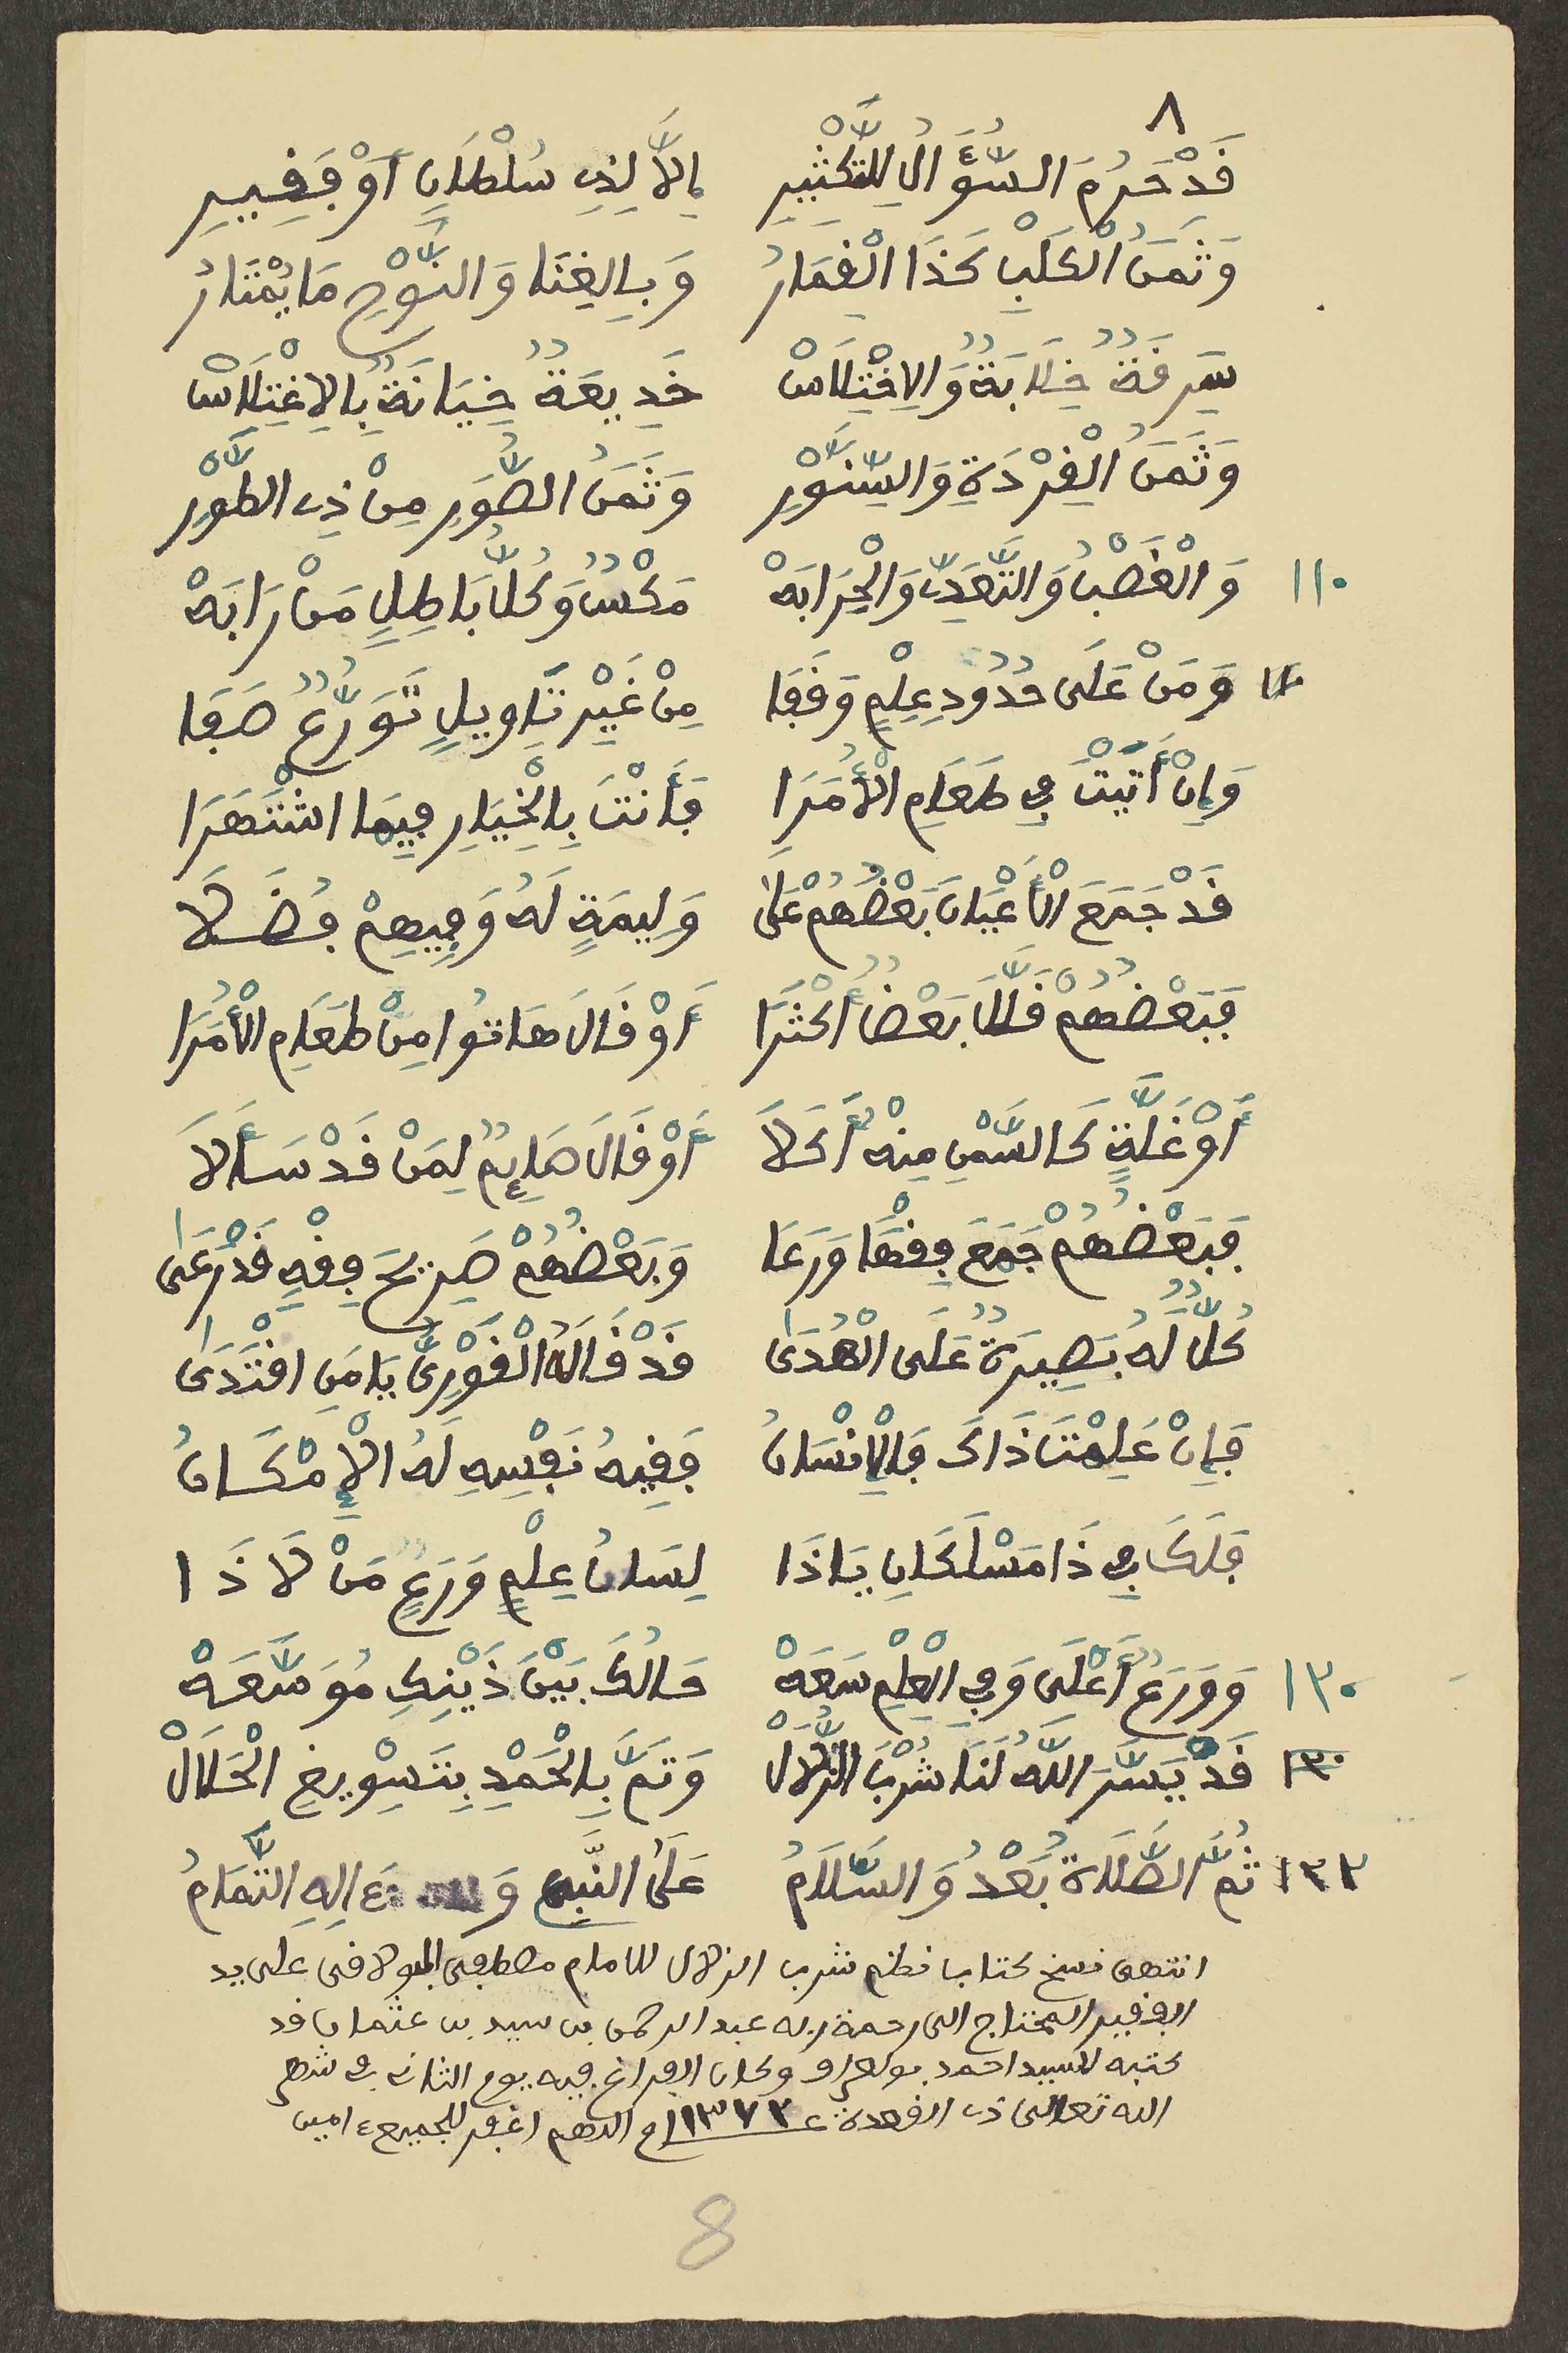 ٨
قَدْ حَرُمَ السُّؤَالُ لِلتَّكْثِيرِ إِلَّا لِذِي سُلْطَانٍ أَوْ فَقِيرِ
وَثَمَنُ الْكَلْبِ كَذَا الْقِمَارُ وَبِالْغِنَا وَالنَّوْحِ مَا يُمْتَارُ
سَرِقَةٌ خِلَابَةٌ وَالِاخْتِلَاسْ خَدِيعَةٌ خِيَانَةٌ بِالِاغْتِلَاسْ
وَثَمَنُ الْقِرْدَةِ وَالسِّنَّوْرِ وَثَمَنُ الصُّوَرِ مِنْ ذِي الطَّوْرِ
١١٠ وَالْغَصْبُ وَالتَّعَدِّي وَالْحِرَابَهْ مَكْسٌ وَكُلُّ بَاطِلٍ مَنْ رَابَهْ
وَمَنْ عَلَى حُدُودِ عِلْمٍ وَقَفَا مِنْ غَيْرِ تَاوِيلٍ تَوَرُّعٌ صَفَا
وَإِنْ أَتَيْتَ فِي طَعَامِ الْأُمَرَا فَأَنْتَ بِالْخِيَارِ فِيمَا اشْتَهَرَا
قَدْ جَمَعَ الْأَعْيَانَ بَعْضُهُمْ عَلَى وَلِيمَةٍ لَهُ وَفِيهِمْ فُضَلَا
فَبَعْضُهُمْ قَلَّلَ بَعْضٌ أَكْثَرَا أَوْ قَالَ هَاتُوا مِنْ طَعَامِ الْأُمَرَا
أَوْ غَلَّةٍ كَالسَّمْنِ مِنْهُ أَكَلَا أَوْ قَالَ صَائِمٌ لِمَنْ قَدْ سَأَلَا
فَبَعْضُهُمْ جَمَعَ فِقْهًا وَرَعَا وَبَعْضُهُمْ صَرِيحَ فِقْهٍ قَدْ رَعَى
كُلٌّ لَهُ بَصِيرَةٌ عَلَى الْهُدَى قَدْ قَالَهُ الْغَوْرِيُّ يَا مَنِ اقْتَدَى
فَإِنْ عَلِمْتَ ذَاكَ فَالْإِنْسَانُ فَقِيهُ نَفْسِهِ لَهُ الْإِمْكَانُ
فَلَكَ فِي ذَا مَسْلَكَانِ يَا ذَا لِسَانُ عِلْمٍ وَرَعٍ مَنْ لَاذَا
١٣٠ وَوَرَعٌ أَعْلَى وَفِي الْعِلْمِ سَعَهْ مَالُكَ بَيْنَ ذَيْنِكِ مُوَسَّعَهْ
١٣٠ قَدْ يَسَّرَ اللَّهُ لَنَا شُرْبَ الزُّلَالْ وَتَمَّ بِالْحَمْدِ بِتَسْوِيغِ الْحَلَالْ
١٣٢ ثُمَّ الصَّلَاةُ بَعْدُ وَالسَّلَامُ عَلَى النَّبِي وَ الِهِ التَّمَامُ
انتهى نسخ كتاب نظم شرب الزلال للامام مصطفى البولاقى على يد
الفقير المحتاج الى رحمة ربه عبد الرحمن بن سيد بن عثمان قد
كتبه للسيد احمد بوكراو وكان الفراغ فيه يوم الثانى فى شهر
الله تعالى ذى القعدة عـ ١٣٧٣ـام اللهم اغفر للجميع ء امين
8